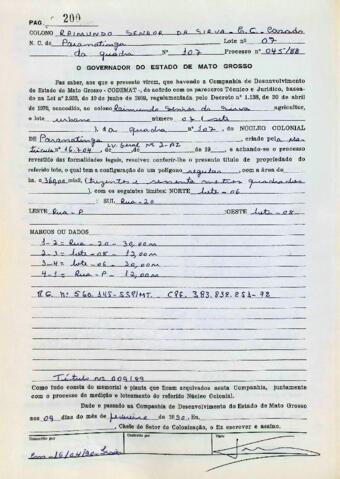 PAG. 200
COLONO RAIMUNDO SENHOR DA SILVA - E.C. Casado
N. C. de Paranatinga Lote nº 07
da quadra Nº 107 Processo nº 045/88
O GOVERNADOR DO ESTADO DE MATO GROSSO
Faz saber, aos que a presente virem, que havendo a Companhia de Desenvolvimento
do Estado de Mato Grosso - CODEMAT -, de acordo com os pareceres Técnico e Jurídico, basea-
do na Lei nº 2.933, de 19 de junho de 1969, regulamentada pelo Decreto nº 1.138, de 20 de abril
de 1970, concedido, ao colono Raimundo Senhor da Silva agricultor,
o lote urbano nº 07 (sete
), da quadra nº 107, do NÚCLEO COLONIAL
DE Paranatinga, criado pela
trícula nº 16.704, Lv. Geral Nº 2-AZ de 19 , e achando-se o processo
revestido das formalidades legais, resolveu conferir-lhe o presente título de propriedade do
referido lote, o qual tem a configuração de um polígono regular, com a área de
ha. 360,00 mts2, (trezentos e sessenta metros quadrados
), com os seguintes limites: NORTE Lote-06
: SUL Rua-20
LESTE Rua-P :OESTE Lote-08
MARCOS OU DADOS
1-2 = Rua - 20 - 30,00m
2-3 = lote - 08 - 12,00m
3-4 = lote - 06 - 30,00m
4-1 = Rua - P - 12,00m
R.G. nº 560.145-SSP/MT. CPF. 383.838.251-72
Título Nº 009/89
Como tudo consta do memorial e planta que ficam arquivados nesta Companhia, juntamente
com o processo de medição e loteamento do referido Núcleo Colonial.
Dado e passado na Companhia de Desenvolvimento do Estado de Mato Grosso
aos 09 dias do mês de fevereiro de 1990. Eu,
, Chefe do Setor de Colonização, o fiz escrever e assino.
Transcrito por
Conferido por
Visto
Em 16/04/90